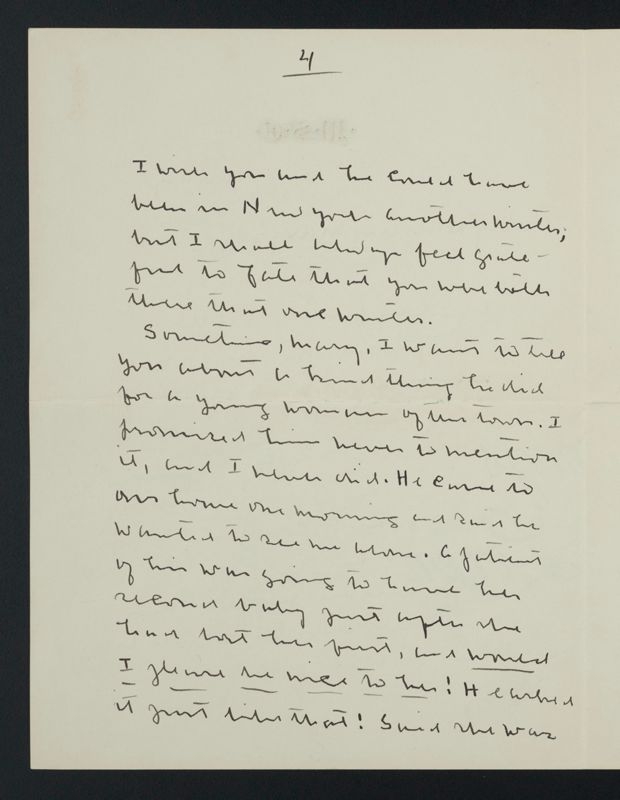 4
I wish you and he could have
been in New York another winter;
but I shall always feel grate-
ful to Fate that you were both
there that one winter.
Sometime, Mary, I want to tell
you about a kind thing he did
for a young woman of this town. I
promised him never to mention
it, and I never did. He came to
our home one morning and said he
wanted to see me alone. A patient
of his was going to have her
second baby just after she
had lost her first, and would
I please be nice to her! He asked
it just like that! Said she was